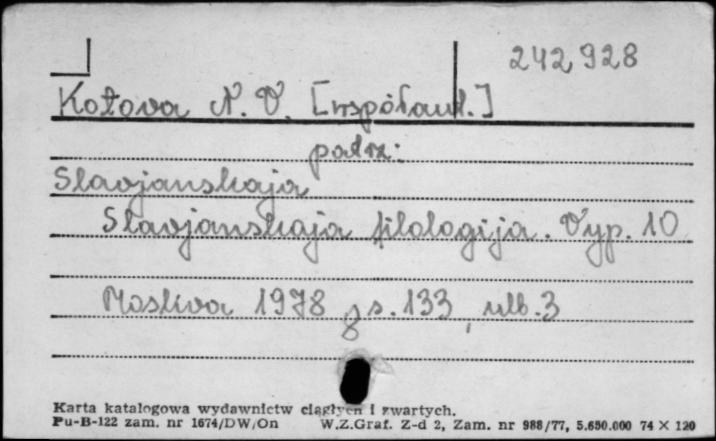 242928
Kotova N. V. [współaut.]
patrz:
Slavjanskaja
Slavjanskaja filologija. Vyp. 10
Moskva 1978 8 s. 133, nlb. 3
Karta katalogowa wydawnictw ciągłych i zwartych.
Pu-B-122 zam. nr 1674/DW/On W.Z.Graf. Z-d 2, Zam. nr 988/77, 5.650.000 74 X 120